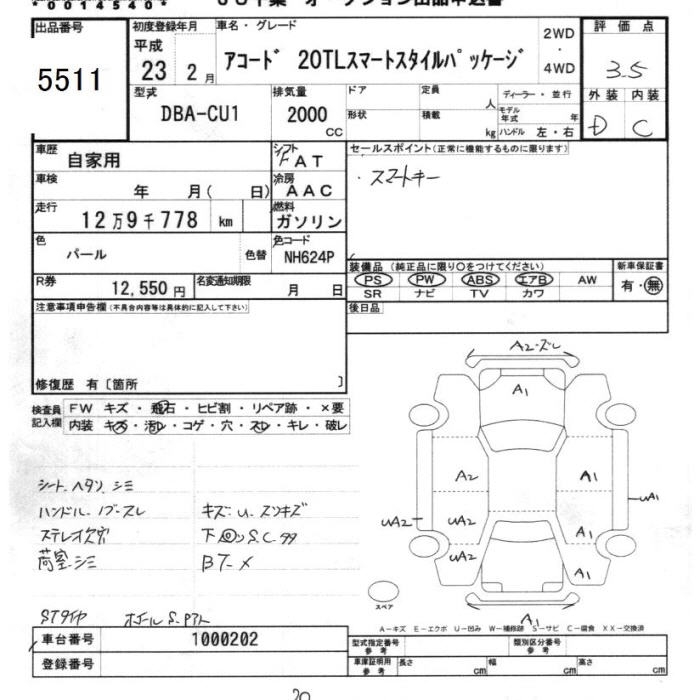 *0014540*
出品番号
5511
初度登録年月
平成
23 2月
車名・グレード
アコード 20TLスマートスタイルパッケージ
2WD
・
4WD
評価点
3.5
外装 内装
D C
型式
DBA-CU1
排気量
2000
CC
ドア
形状
定員
人
積載
kg
ディーラー・並行
モデル年式 年
ハンドル 左・右
車歴
自家用
シフト
FAT
車検
年 月( 日)
冷房
AAC
走行
12万9千778 km
燃料
ガソリン
色
パール
色替
色コード
NH624P
セールスポイント(正常に機能するものに限ります)
・スマートキー
R券
12,550円
名変通知期限
月 日
装備品(純正品に限り○をつけてください)
PS PW ABS エアB AW
SR ナビ TV カワ
新車保証書
有・無
後日品
注意事項申告欄(不具合内容等は具体的に記入して下さい)
修復歴 有〔箇所 〕
検査員記入欄
FW キズ・飛石・ヒビ割・リペア跡・×要
内装 キズ・汚レ・コゲ・穴・スレ・キレ・破レ
シート、ヘタリ、シミ
ハンドル、ノブースレ
ステレオ欠穴
荷室シミ
キズ・u・スリキズ
下回りS.C
Bフ-メ
STタイヤ
ホイールS
A2・ズレ
A1
A2
A1
uA2
uA2
uA1
A1
uA2
A1
A1
スペア
A-キズ E-エクボ U-凹み W-補修跡 S-サビ C-腐食 XX-交換済
車台番号
1000202
登録番号
型式指定番号
参考
類別区分番号
参考
車庫証明用
参考
長さ
cm
幅
cm
高さ
cm
20